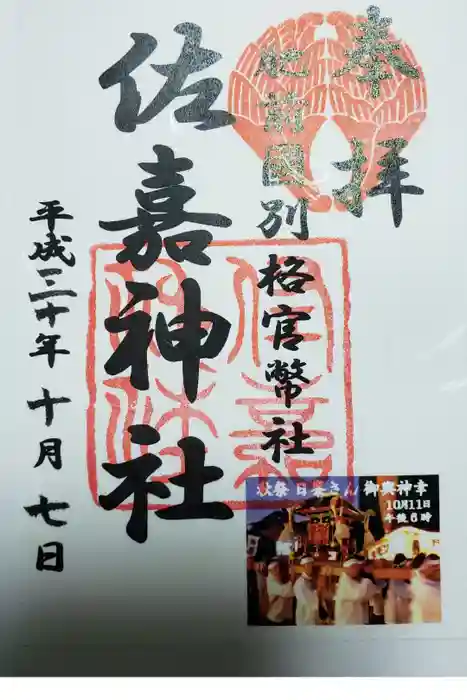 奉拝
肥前國別格官幣社
佐嘉神社
平成三十年十月七日
秋祭 日峯さん 御輿神幸
10月11日
午後6時